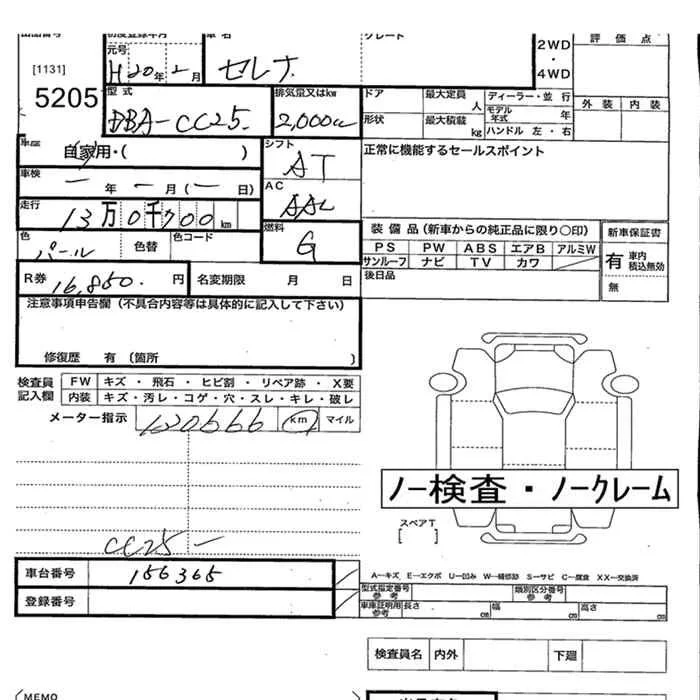 初度登録年月 車名 グレード
[1131]
5205
元号
H20年2月 セレナ
2WD
・
4WD
評価点
外装 内装
型式 DBA-CC25
排気量又はkw 2,000cc
ドア 最大定員 人
形状 最大積載 kg
ディーラー・並行
モデル年式 年
ハンドル 左・右
車歴 自家用・( )
シフト AT
正常に機能するセールスポイント
車検 ー年ー月(ー日)
AC AAC
走行 13万0千700km
燃料 G
色 パール 色替 色コード
装備品(新車からの純正品に限り〇印)
PS PW ABS エアB アルミW
サンルーフ ナビ TV カワ
新車保証書
有 車内積込無効
無
R券 16,850.円 名変期限 月 日
後日品
注意事項申告欄(不具合内容等は具体的に記入して下さい)
修復歴 有(箇所 )
検査員記入欄
FW キズ・飛石・ヒビ割・リペア跡・X要
内装 キズ・汚レ・コゲ・穴・スレ・キレ・破レ
メーター指示 km マイル
ノー検査・ノークレーム
スペアT
[ ]
CC25-
車台番号 156365
登録番号
A—キズ E—エクボ U—凹み W—補修跡 S—サビ C—腐食 XX—交換済
型式指定番号 参考 類別区分番号 参考
車庫証明用 参考 長さ cm 幅 cm 高さ cm
検査員名 内外 下廻
MEMO